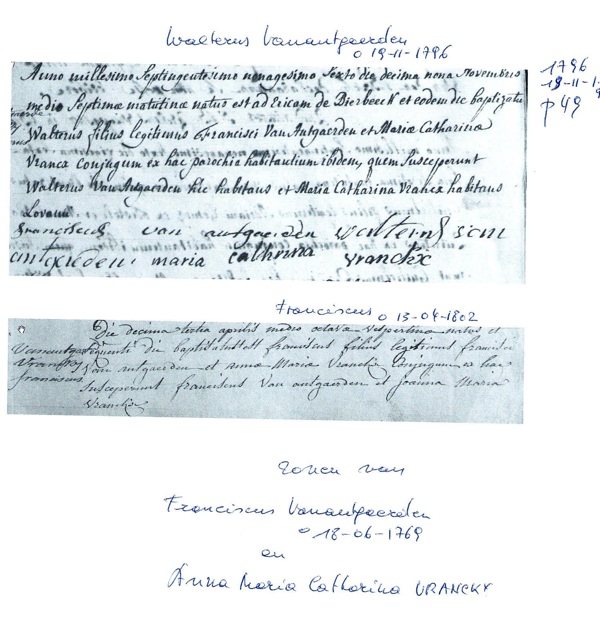 Walterus Vanautgaerden
o 19-11-1796
1796
19-11-1
p 49
Anno millesimo Septingentesimo nonagesimo Sexto die decima nona Novembris
media Septima matutina natus est ad Ericam de Bierbeeck et eodem die baptizatus
Walterus filius legitimus Francisci Van Autgaerden et Maria Catharina
Vrancx conjugum ex hac parochia habitantium ibidem, quem Susceperunt
Walterus Van Autgaerden hic habitans et Maria Catharina Vrancx habitans
Lovanii
Franciscus van autgaerden Walterus van
autgaerden maria cathrina vranckx
Franciscus o 13-04-1802
Die decima tertia aprilis media octava vespertina natus et
sequenti die baptisatus est franciscus filius legitimus francisci
Van autgaerden et anna Maria Vranckx Conjugum ex hac
Susceperunt franciscus Van autgaerden et Joanna Maria
Vranckx
franciscus
Zonen van
Franciscus Vanautgaerden
o 18-06-1769
en
Anna Maria Catharina VRANCKX